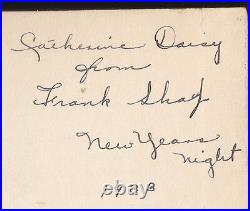 Catherine Daisy
from
Frank Shay
New Years
night
ebay